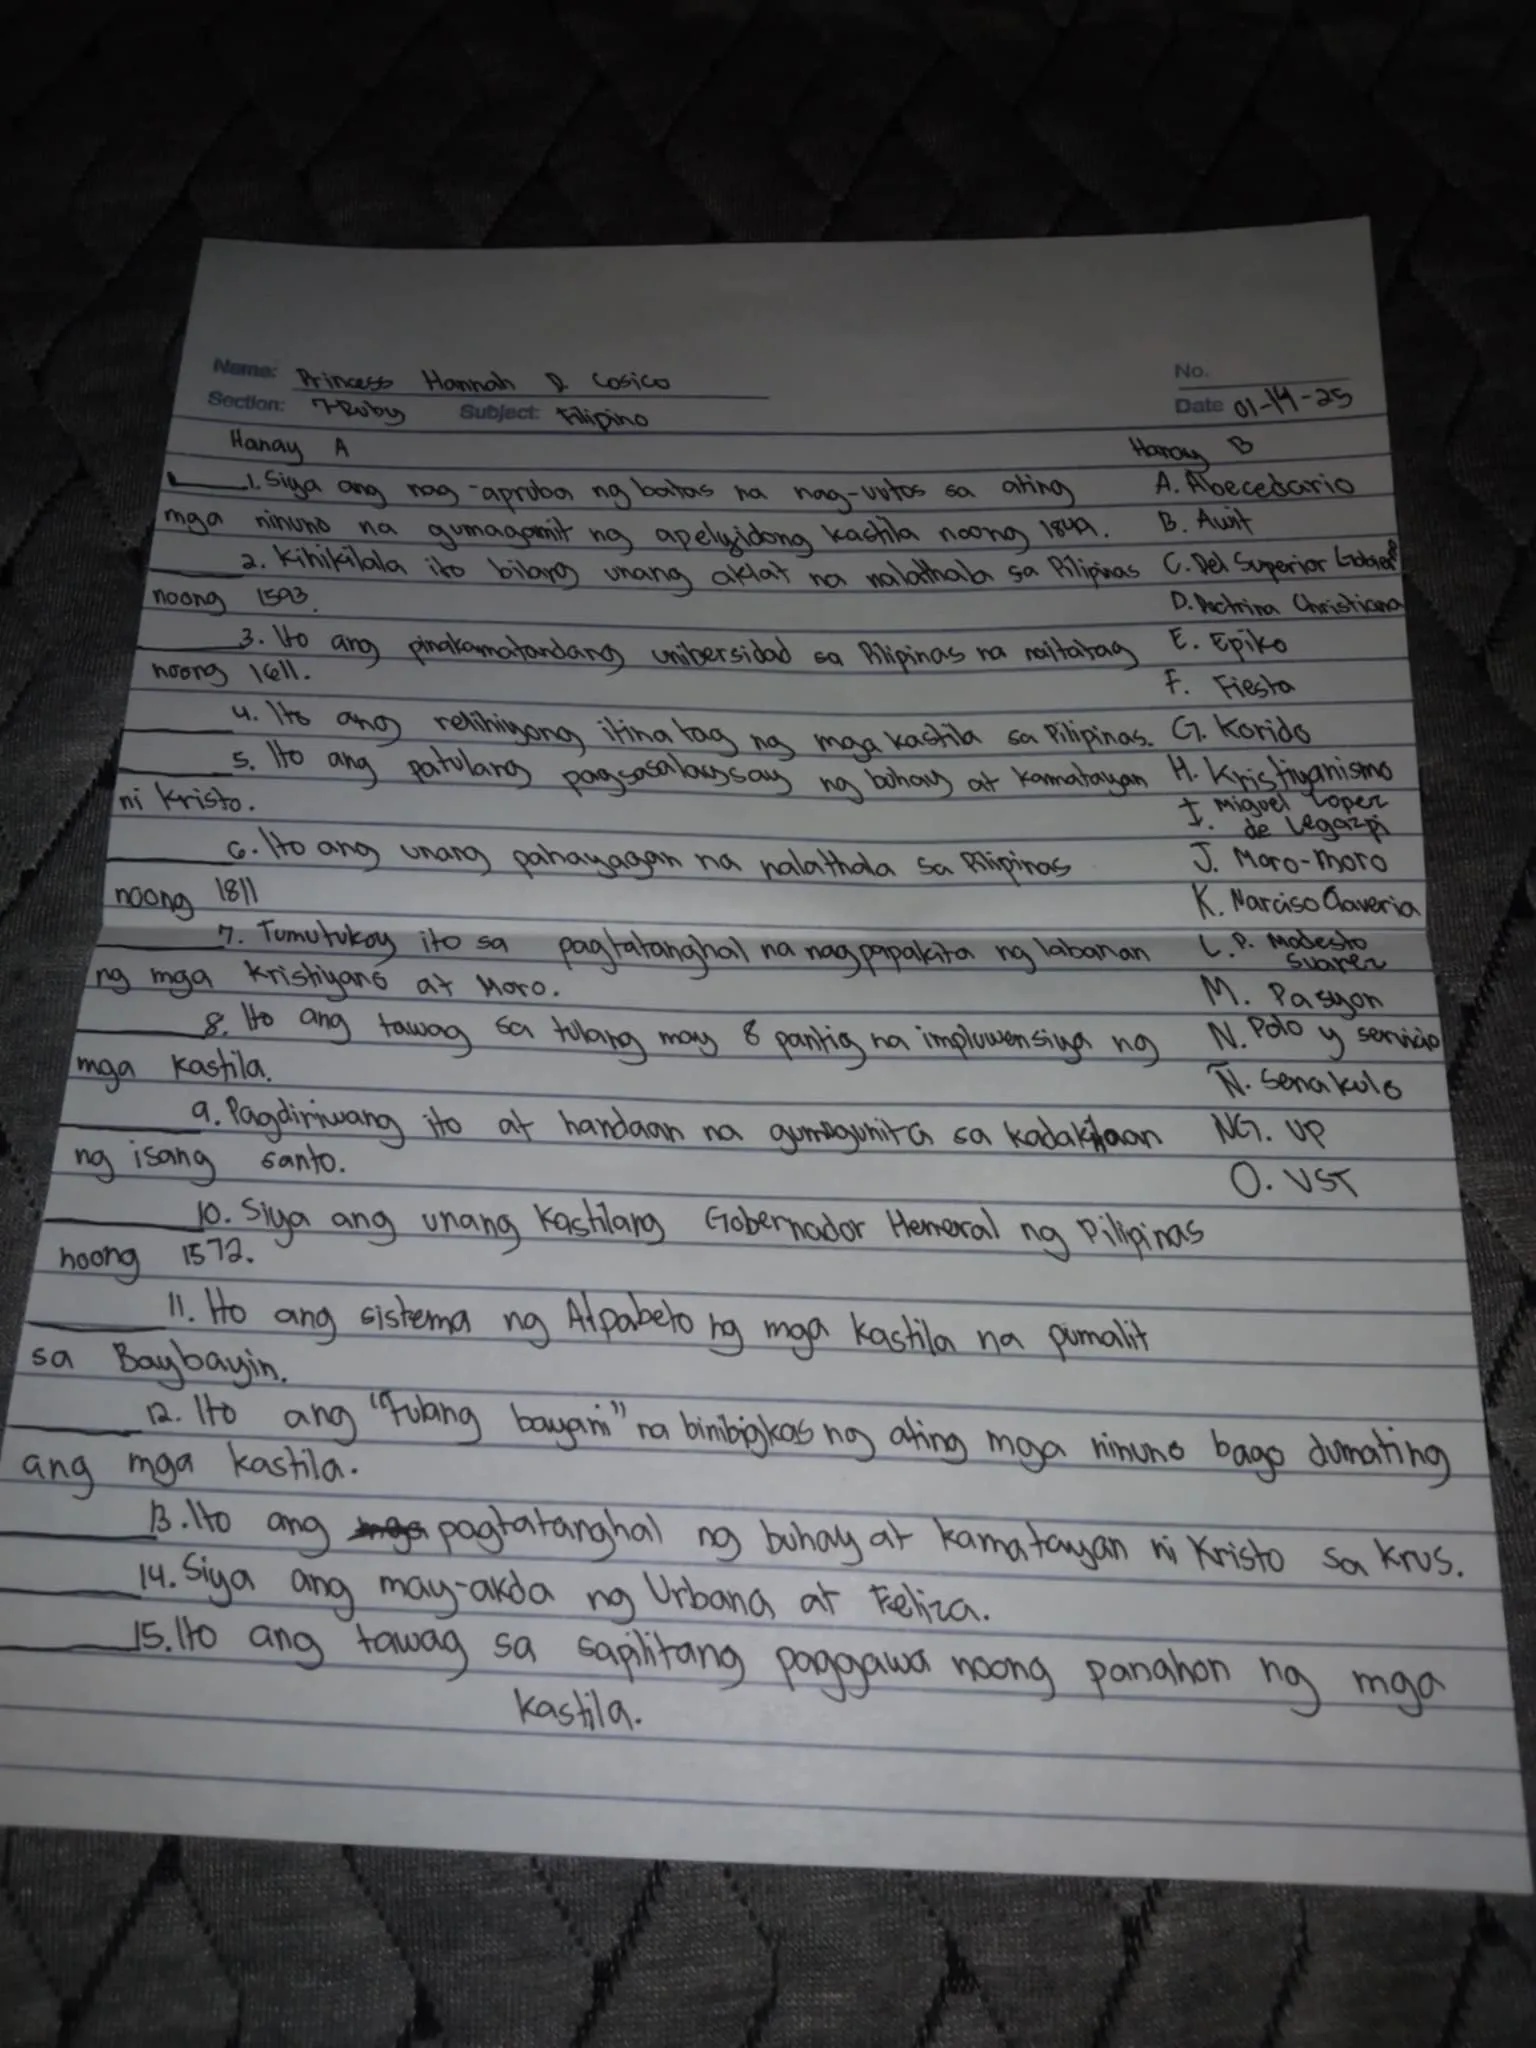 Name: Princess Hannah D. Cosico
No.
Section: 7-Ruby Subject: Filipino
Date 01-14-25
Hanay A
Hanay B
1. Siya ang nag-aproba ng batas na nag-uutos sa ating
A. Abecedario
mga ninuno na gumagamit ng apelyidong kastila noong 1849.
B. Awit
2. Kinikilala ito bilang unang aklat na nalathala sa Pilipinas
C. Del Superior
noong 1593.
D. Doctrina Christiana
3. Ito ang pinakamatandang unibersidad sa Pilipinas na naitatag
E. Epiko
noong 1611.
F. Fiesta
4. Ito ang relihiyong itinatag ng mga kastila sa Pilipinas.
G. Korido
5. Ito ang patulang pagsasalaysay ng buhay at kamatayan
H. Kristiyanismo
ni Kristo.
I. Miguel Lopez
de Legazpi
6. Ito ang unang pahayagan na nalathala sa Pilipinas
J. Moro-moro
noong 1811
K. Narciso Claveria
7. Tumutukoy ito sa pagtatanghal na nagpapakita ng labanan
L. P. Modesto
Suarez
ng mga Kristiyano at Moro.
M. Pasyon
8. Ito ang tawag sa tulang may 8 pantig na impluwensiya ng
N. Polo y servicio
mga Kastila.
Ñ. Senakulo
9. Pagdiriwang ito at handaan na gumugunita sa kadakilaan
NG. UP
ng isang santo.
O. UST
10. Siya ang unang Kastilang Gobernador Heneral ng Pilipinas
noong 1572.
11. Ito ang sistema ng Alpabeto ng mga kastila na pumalit
sa Baybayin.
12. Ito ang "Tulang bayani" na binibigkas ng ating mga ninuno bago dumating
ang mga kastila.
13. Ito ang mga pagtatanghal ng buhay at kamatayan ni Kristo sa Krus.
14. Siya ang may-akda ng Urbana at Feliza.
15. Ito ang tawag sa sapilitang paggawa noong panahon ng mga
kastila.